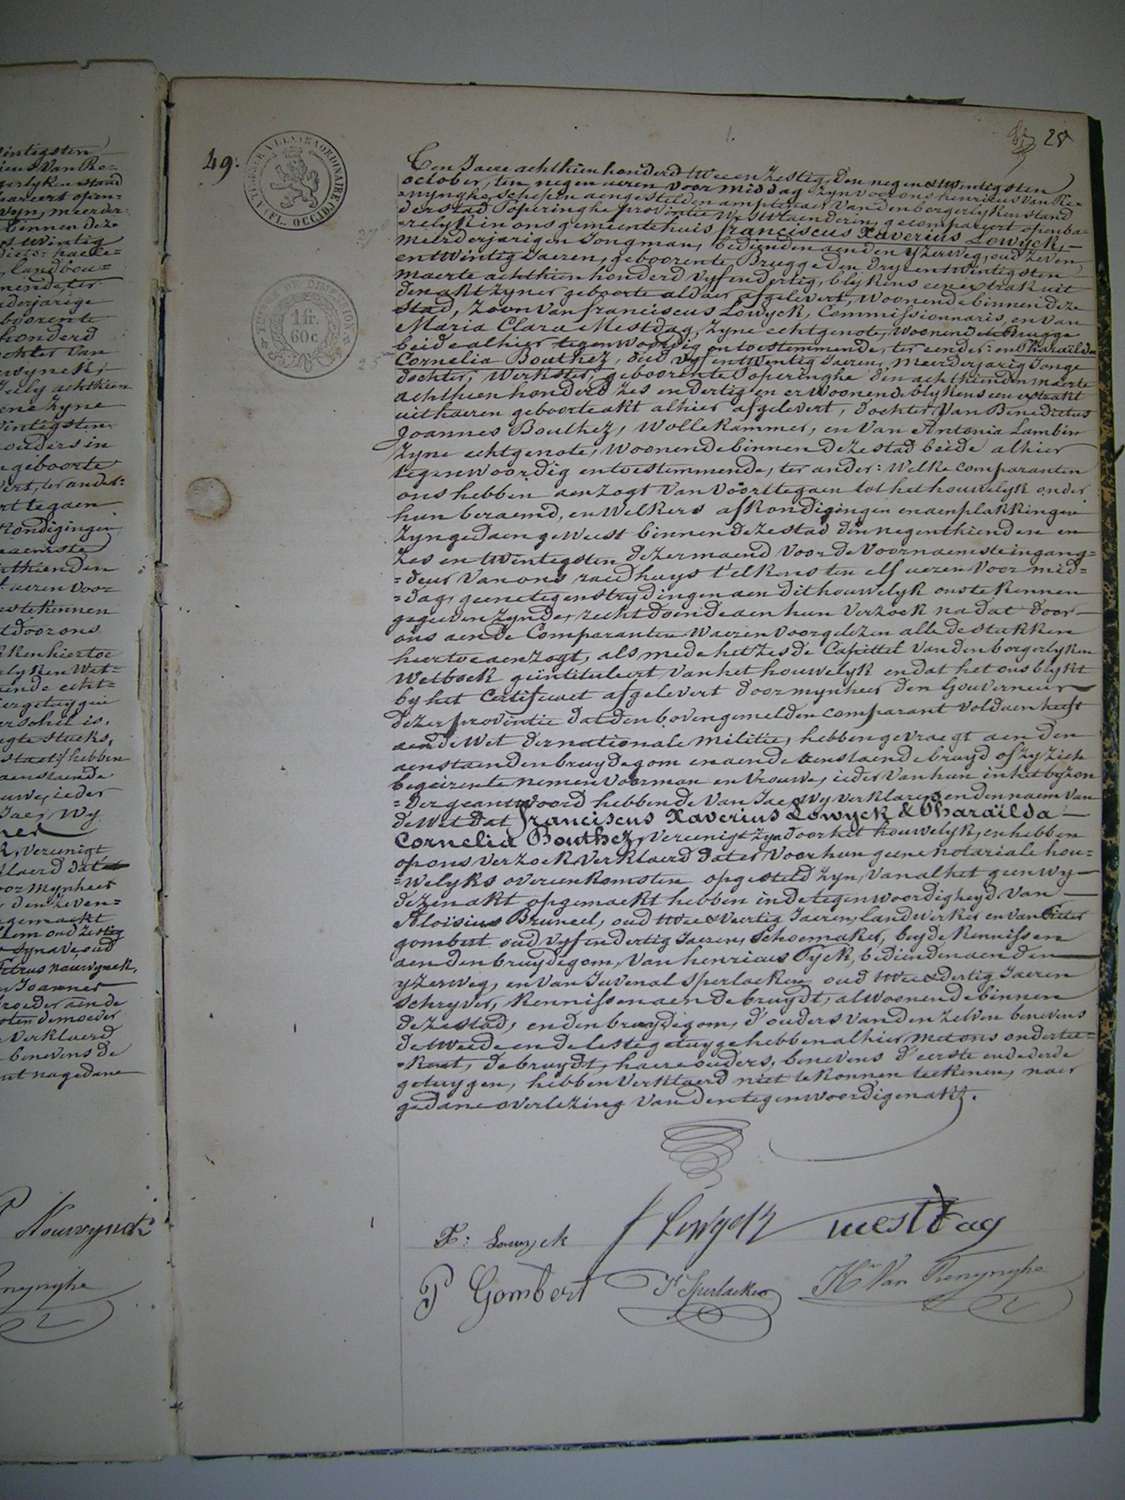 28
49.
1 fr.
60 c
Een Jaere achthienhonderd twee en zestig, den negenentwintigsten
october, ten negen uren voor middag, zyn voor ons henricus Van Re-
nynghe, schepen aengestelden amptenaer van den borgerlyken stand
der stad Poperinghe, provintie Westvlaenderen, gecompareert openba-
-relyk in ons gemeentehuis franciscus Xaverius Lowyck,
meerderjarigen Jongman, bedienden aen den yzerweg, oud zeven
en twintig Jaeren, geboorente Brugge den dry en twintigsten
maerte achthien honderd vyf en dertig, blykens een extrakt uit
den akt zyner geboorte aldaer afgelevert, woonende binnen deze
stad, Zoon van franciscus Lowyck, Commissionnaris, en van
Maria Clara Mestdag, zyne echtgenote, woonende te Brugge
beide alhier tegenwoordig en toestemmende, ter eender: en Pharaïlda
Cornelia Bouthez, oud vyf en twintig Jaeren, meerderjarig Jonge
dochter, werkster, geboorente Poperinghe den achthienden maerte
achthien honderd zes en dertig en er woonende blykens een extrakt
uit haeren geboorteakt alhier afgelevert, dochter van Benedictus
Joannes Bouthez, Wollekammer, en van Antonia Lambin
zyne echtgenote, woonende binnen deze stad beide alhier
tegenwoordig en toestemmende, ter ander: Welke comparanten
ons hebben aenzogt van voorttegaen tot het houwelyk onder
hun beraemd, en welkers afkondigingen en aenplakkingen
zyn gedaen geweest binnen deze stad den negenthienden en
zes en twintigsten dezer maend voor de voornaemste ingang-
-deur van ons raedhuys t'elkens ten elf uren voor mid-
-dag, geene tegenstrydingen aen dit houwelyk ons te kennen
gegeven zynde, recht doende aen hun verzoek na dat door
ons aen de Comparanten waeren voorgelezen alle de stukken
hiertoe aenzogt, als mede het zesde Capittel van den borgerlyken
Wetboek geïntituleert van het houwelyk en dat het ons blykt
by het Certificaet afgelevert door mynheer den Gouverneur
dezer provintie dat den bovengemelden comparant voldaen heeft
aen de Wet der nationale militie, hebben gevraegt aen den
aenstaenden bruydegom en aen de aenstaende bruyd of zy zich
begeirente nemen voor man en vrouwe, ieder van hun in het byzon
-der geantwoord hebbende van Jae, wy verklaren en den naem van
de Wet dat franciscus Xaverius Lowyck & Pharaïlda
Cornelia Bouthez, vereenigt zyn door het houwelyk, en hebben
op ons verzoek verklaerd dat er voor hun geene notariale hou-
-welyks overeenkomsten opgesteld zyn, van al het geen wy
dezen akt opgemaekt hebben in de tegenwoordigheyd van
Aloisius Bruneel, oud twee & veertig Jaeren, landwerker en van Pieter
gombert oud vyf en dertig Jaeren, schoemaker, beyde kennissen
aen den bruydigom, van henricus Tyck, bedienden aen den
yzerweg, en van Juvenal Sperlaeken oud twee & dertig Jaeren
schryver, kennissen aen de bruydt, al woonende binnen
deze stad, en den bruydigom, d'ouders van den zelven benevens
de tweede en de leste getuyge hebben alhier met ons ondertee-
-kent, de bruydt, haere ouders, benevens d'eerste en de derde
getuygen, hebben verklaerd niet te konnen teekenen, naer
gedane overlezing van den tegenwoordigen akt.
F: Lowyck f Lowyck mestdag
P Gombert J Sperlaeken Hri Van Renynghe